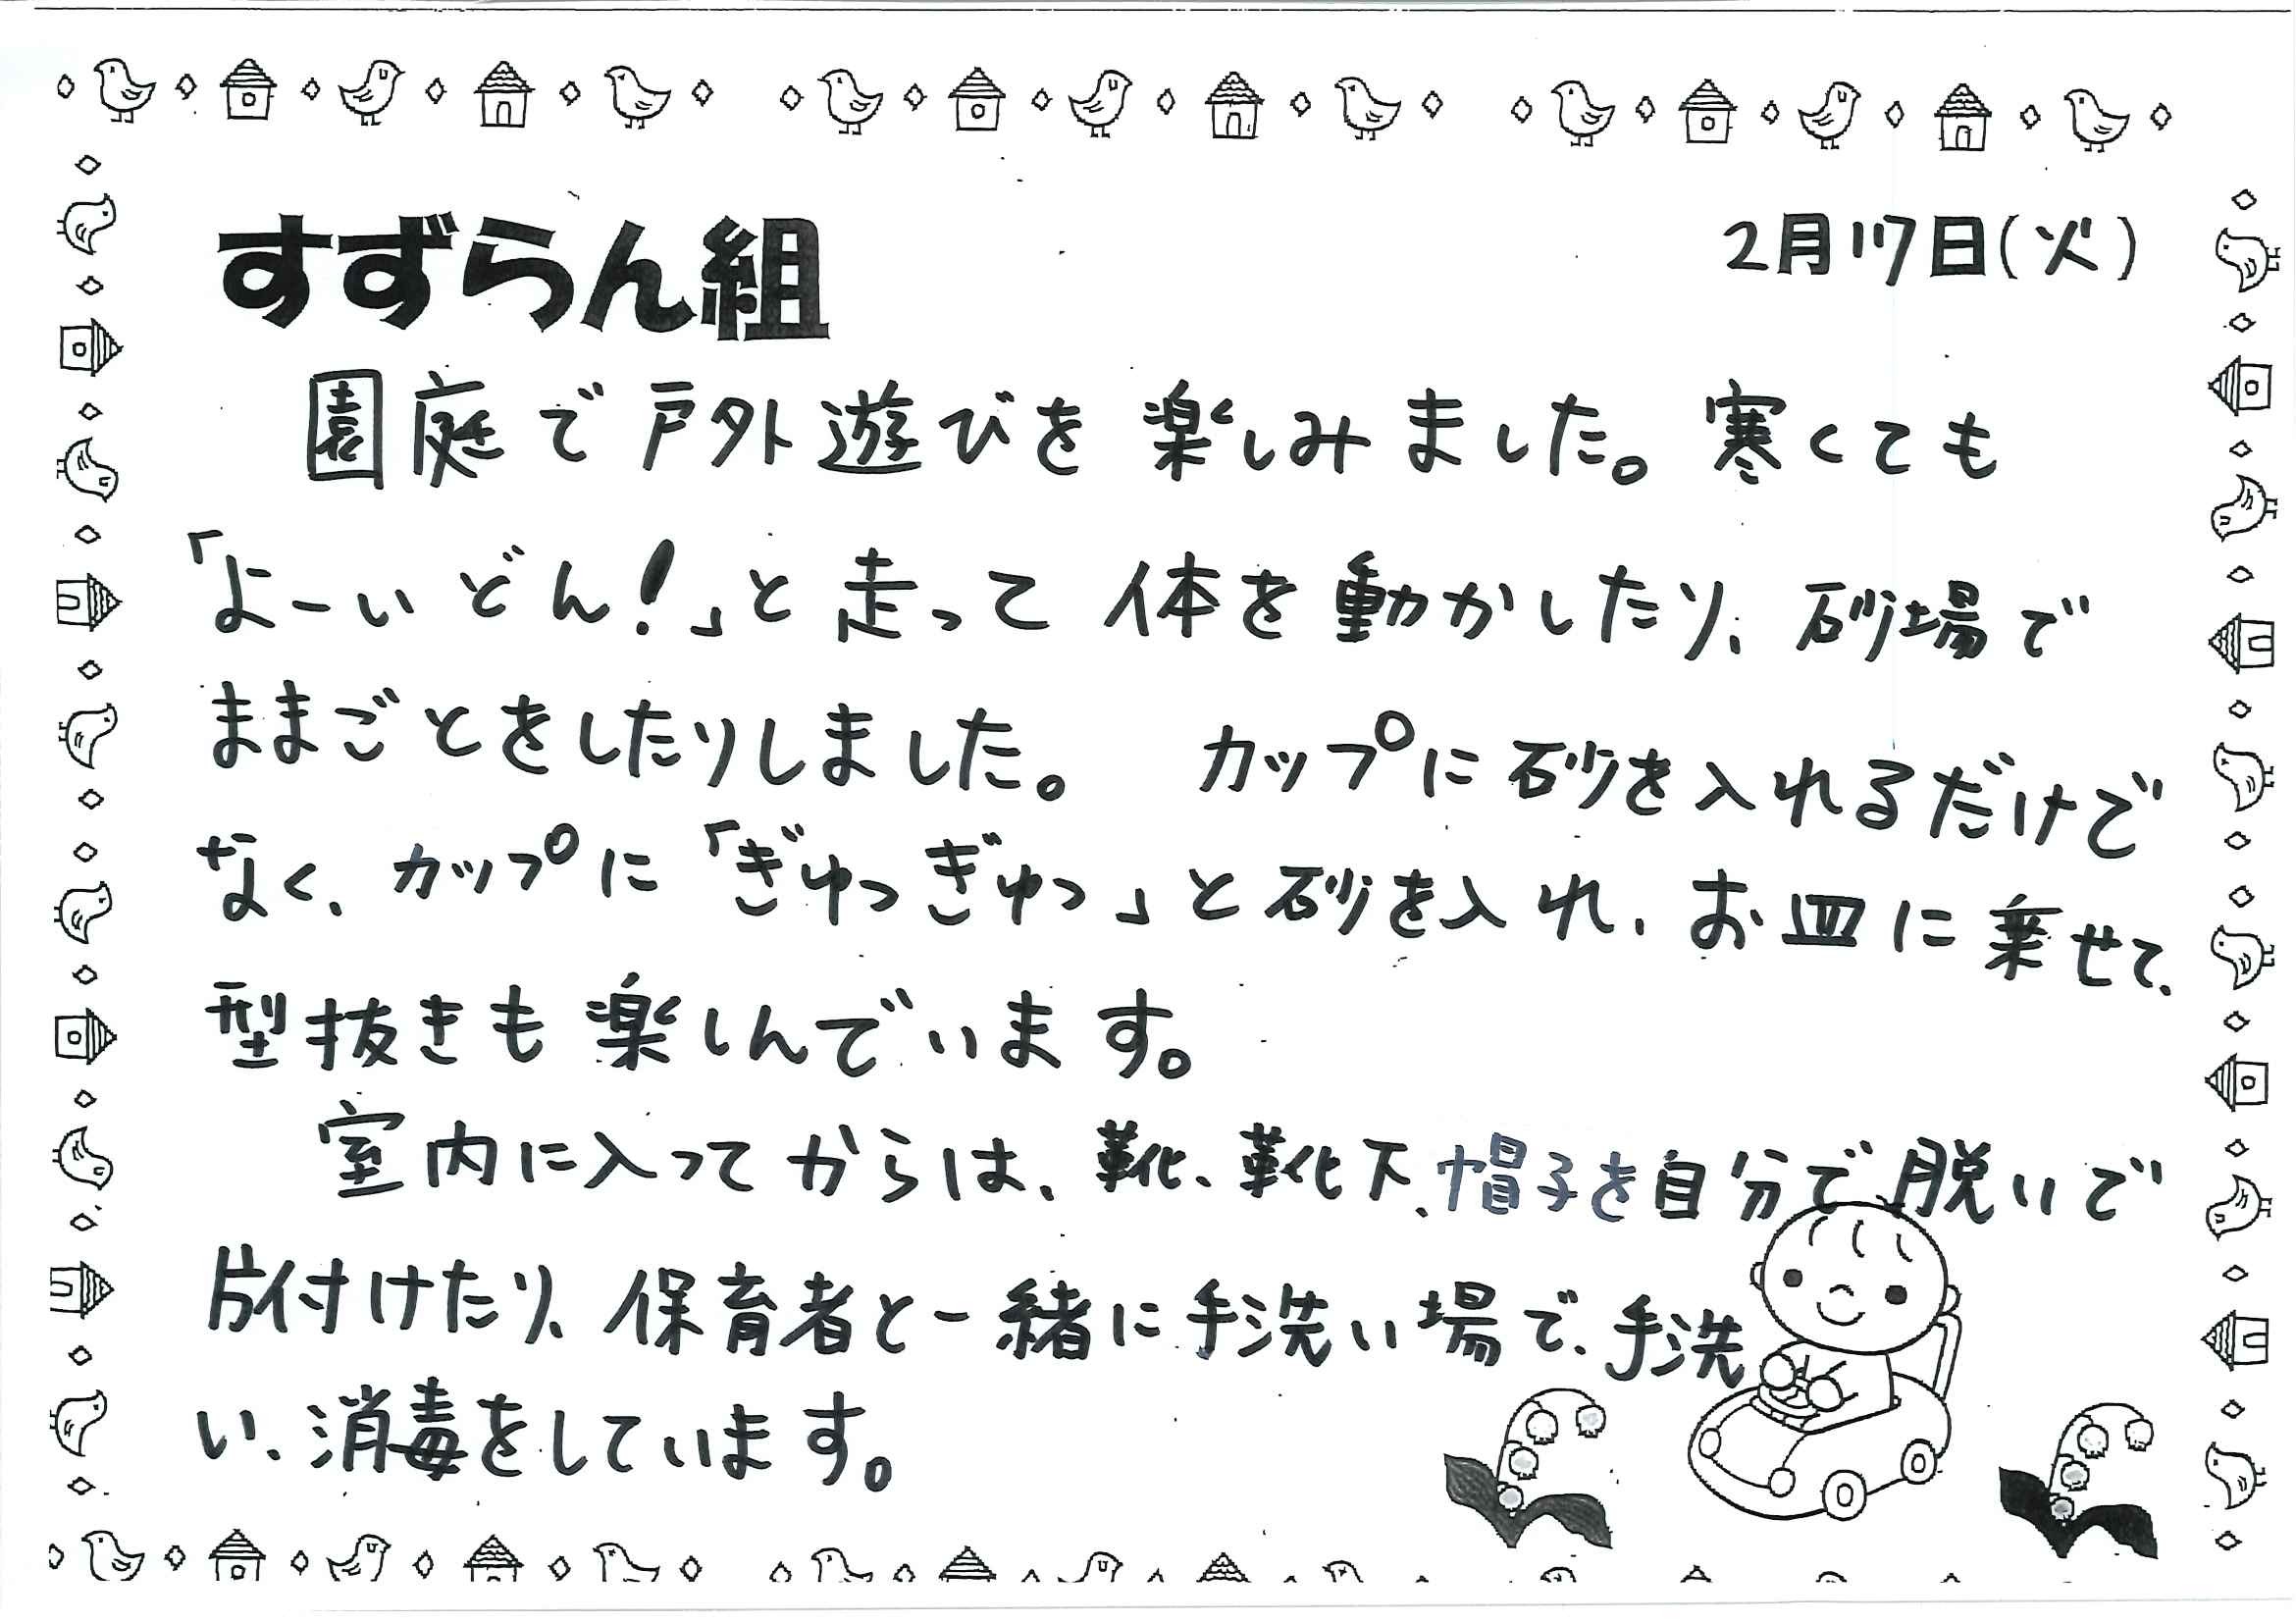 すずらん組
2月17日(火)
園庭で戸外遊びを楽しみました。寒くても
「よーいどん!」と走って体を動かしたり、砂場で
ままごとをしたりしました。カップに砂を入れるだけで
なく、カップに「ぎゅっぎゅっ」と砂を入れ、お皿に乗せて、
型抜きも楽しんでいます。
室内に入ってからは、靴、靴下、帽子を自分で脱いで
片付けたり、保育者と一緒に手洗い場で、手洗
い、消毒をしています。